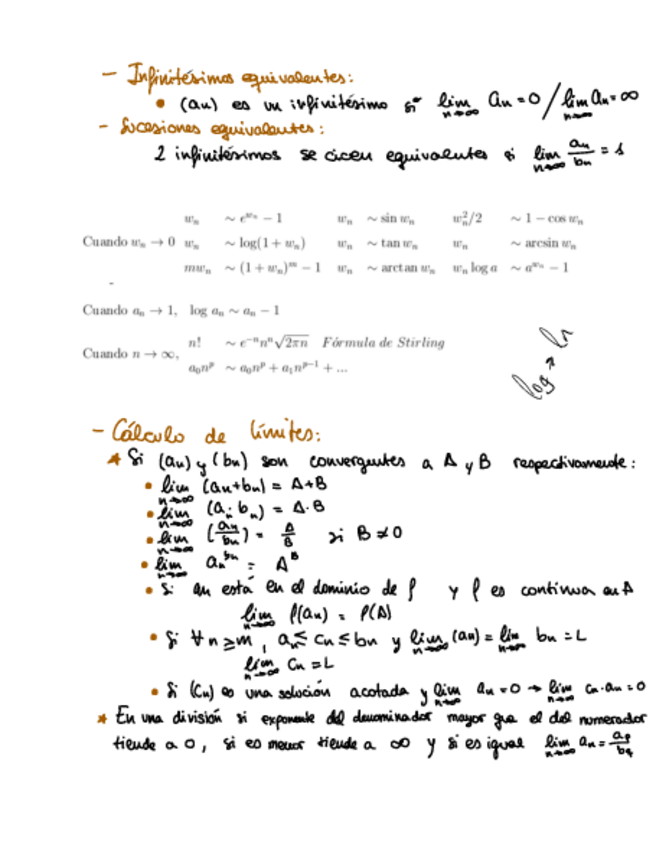 - Infinitésimos equivalentes:
• (an) es un infinitésimo si lim n→∞ an = 0 / lim n→∞ an = ∞
- Sucesiones equivalentes:
2 infinitésimos se dicen equivalentes si lim n→∞ an/bn = 1
wₙ ∼ e^{wₙ} − 1 wₙ ∼ sin wₙ wₙ²/2 ∼ 1 − cos wₙ
Cuando wₙ → 0 wₙ ∼ log(1 + wₙ) wₙ ∼ tan wₙ wₙ ∼ arcsin wₙ
mwₙ ∼ (1 + wₙ)^m − 1 wₙ ∼ arctan wₙ wₙ log a ∼ a^{wₙ} − 1
Cuando aₙ → 1, log aₙ ∼ aₙ − 1
Cuando n → ∞, n! ∼ e^{−n}n^n√(2πn) Fórmula de Stirling
a₀n^p ∼ a₀n^p + a₁n^{p−1} + ...
log → ln
- Cálculo de límites:
★ Si (an) y (bn) son convergentes a A y B respectivamente:
• lim n→∞ (an+bn) = A+B
• lim n→∞ (a; bn) = A·B
• lim n→∞ (an/bn) = A/B si B ≠ 0
• lim n→∞ an^{bn} = A^B
• Si an está en el dominio de f y f es continua en A
lim n→∞ f(an) = f(A)
• Si ∀ n ≥ m, an ≤ cn ≤ bn y lim n→∞ (an) = lim n→∞ bn = L
lim n→∞ cn = L
• Si (Cn) es una solución acotada y lim n→∞ an = 0 → lim n→∞ cn·an = 0
★ En una división si exponente del denominador mayor que el del numerador
tiende a 0, si es menor tiende a ∞ y si es igual lim n→∞ an = ap/bq